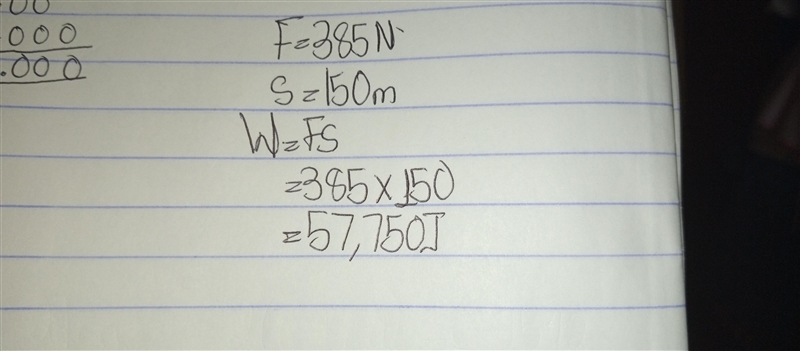 00
000
.000
F=385N
S=150m
W=FS
=385×150
=57,750J